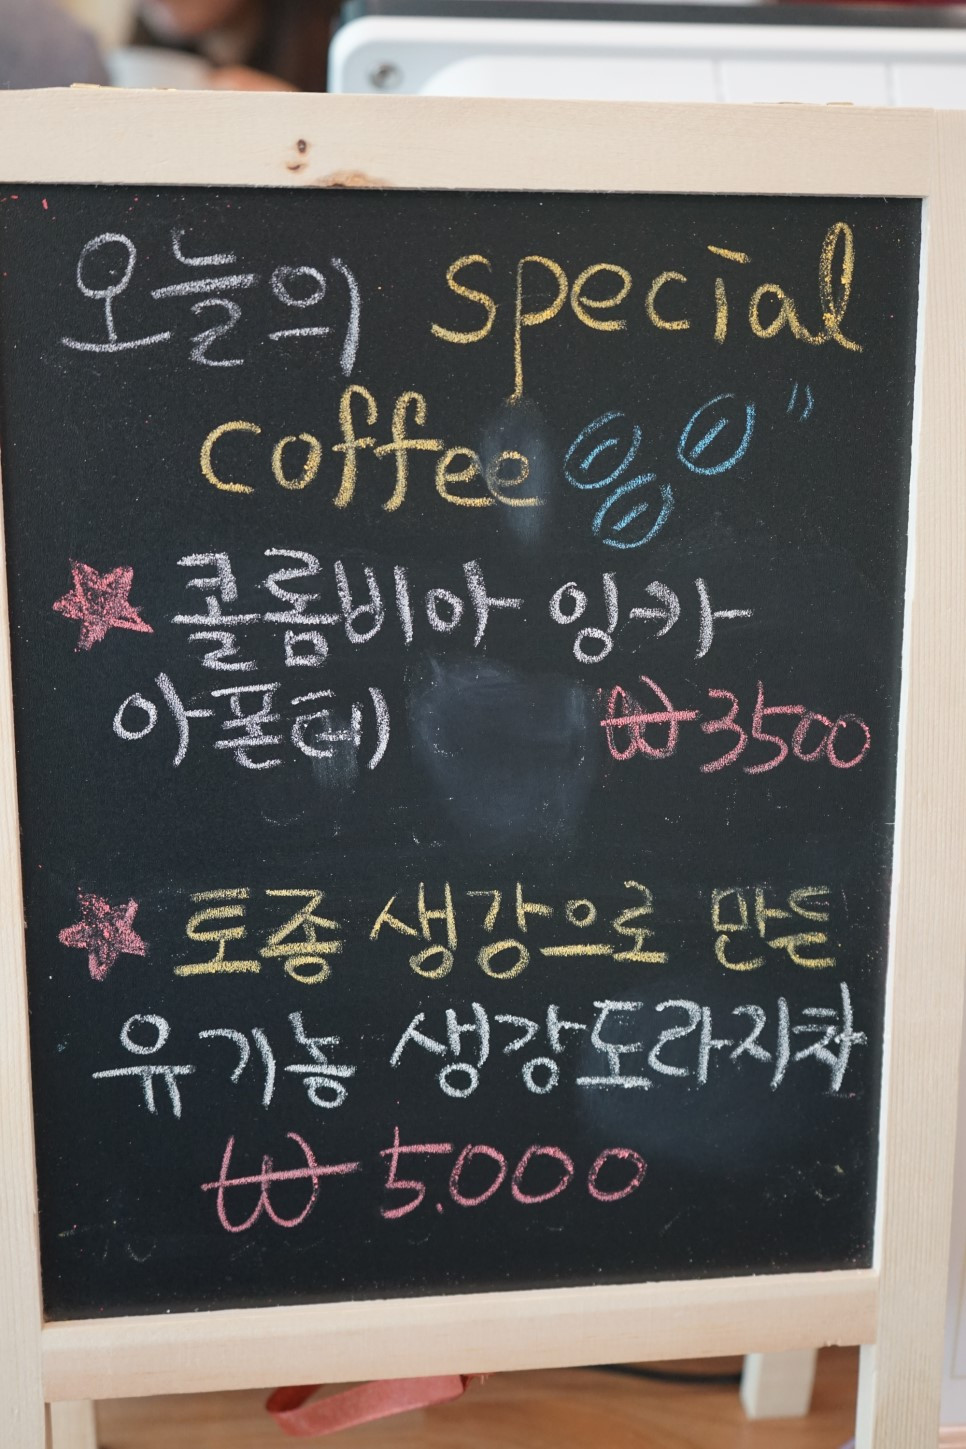 오늘의 special
coffee
콜롬비아 잉카
아폰테 ₩3500
토종 생강으로 만든
유기농 생강도라지차
₩5.000